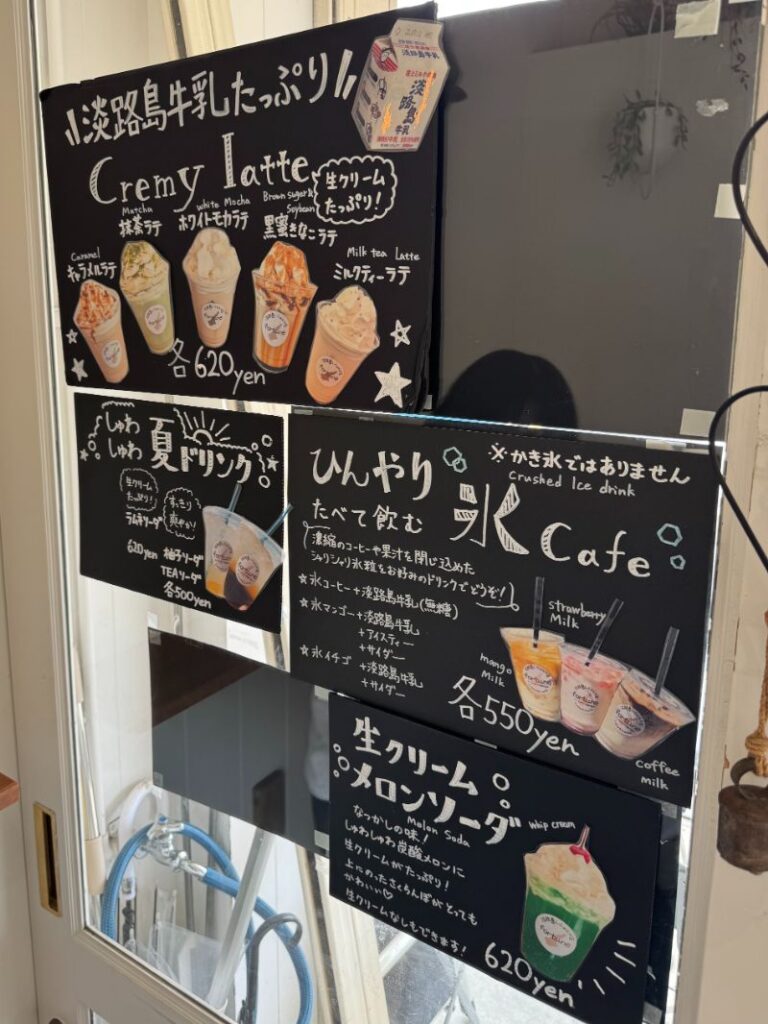 淡路島牛乳たっぷり
淡路島牛乳
淡路島
牛乳
Cremy latte
生クリーム
たっぷり!
Caramel
キャラメルラテ
Matcha
抹茶ラテ
white Mocha
ホワイトモカラテ
Brown sugar &
Soybean
黒蜜きなこラテ
Milk tea Latte
ミルクティーラテ
各620yen
しゅわ
しゅわ
夏ドリンク
生クリーム
たっぷり!
ラムネソーダ
620yen
すっきり
爽やか!
柚子ソーダ
TEAソーダ
各500yen
ひんやり
たべて飲む
氷 Cafe
※かき氷ではありません
Crushed Ice drink
濃縮のコーヒーや果汁を閉じ込めた
シャリシャリ氷粒をお好みのドリンクでどうぞ!
☆氷コーヒー+淡路島牛乳(無糖)
☆氷マンゴー+淡路島牛乳
+アイスティー
+サイダー
☆氷イチゴ +淡路島牛乳
+サイダー
mango
Milk
strawberry
Milk
coffee
milk
各550yen
fortune
生クリーム
メロンソーダ
Melon Soda
whip cream
なつかしの味!
しゅわしゅわ炭酸メロンに
生クリームがたっぷり!
上にのったさくらんぼがとっても
かわいい♡
生クリームなしもできます!
620yen